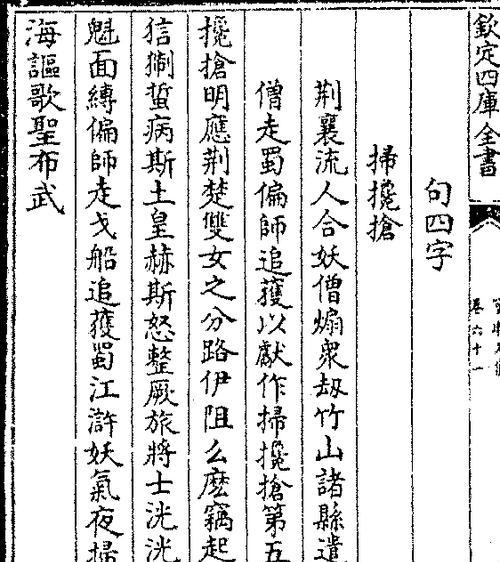 欽定四庫全書
卷六十一
句四字
掃攙搶
荆襄流人合妖僧煽衆刼竹山諸縣遣
僧走蜀偏師追獲以獻作掃攙搶第五
攙搶明應荆楚雙女之分路伊阻么麽竊起
狺猘蜇病斯土皇赫斯怒整厥旅將士洸洸
魁面縛偏師走戈船追獲蜀江滸妖氣夜掃
海謳歌聖布武